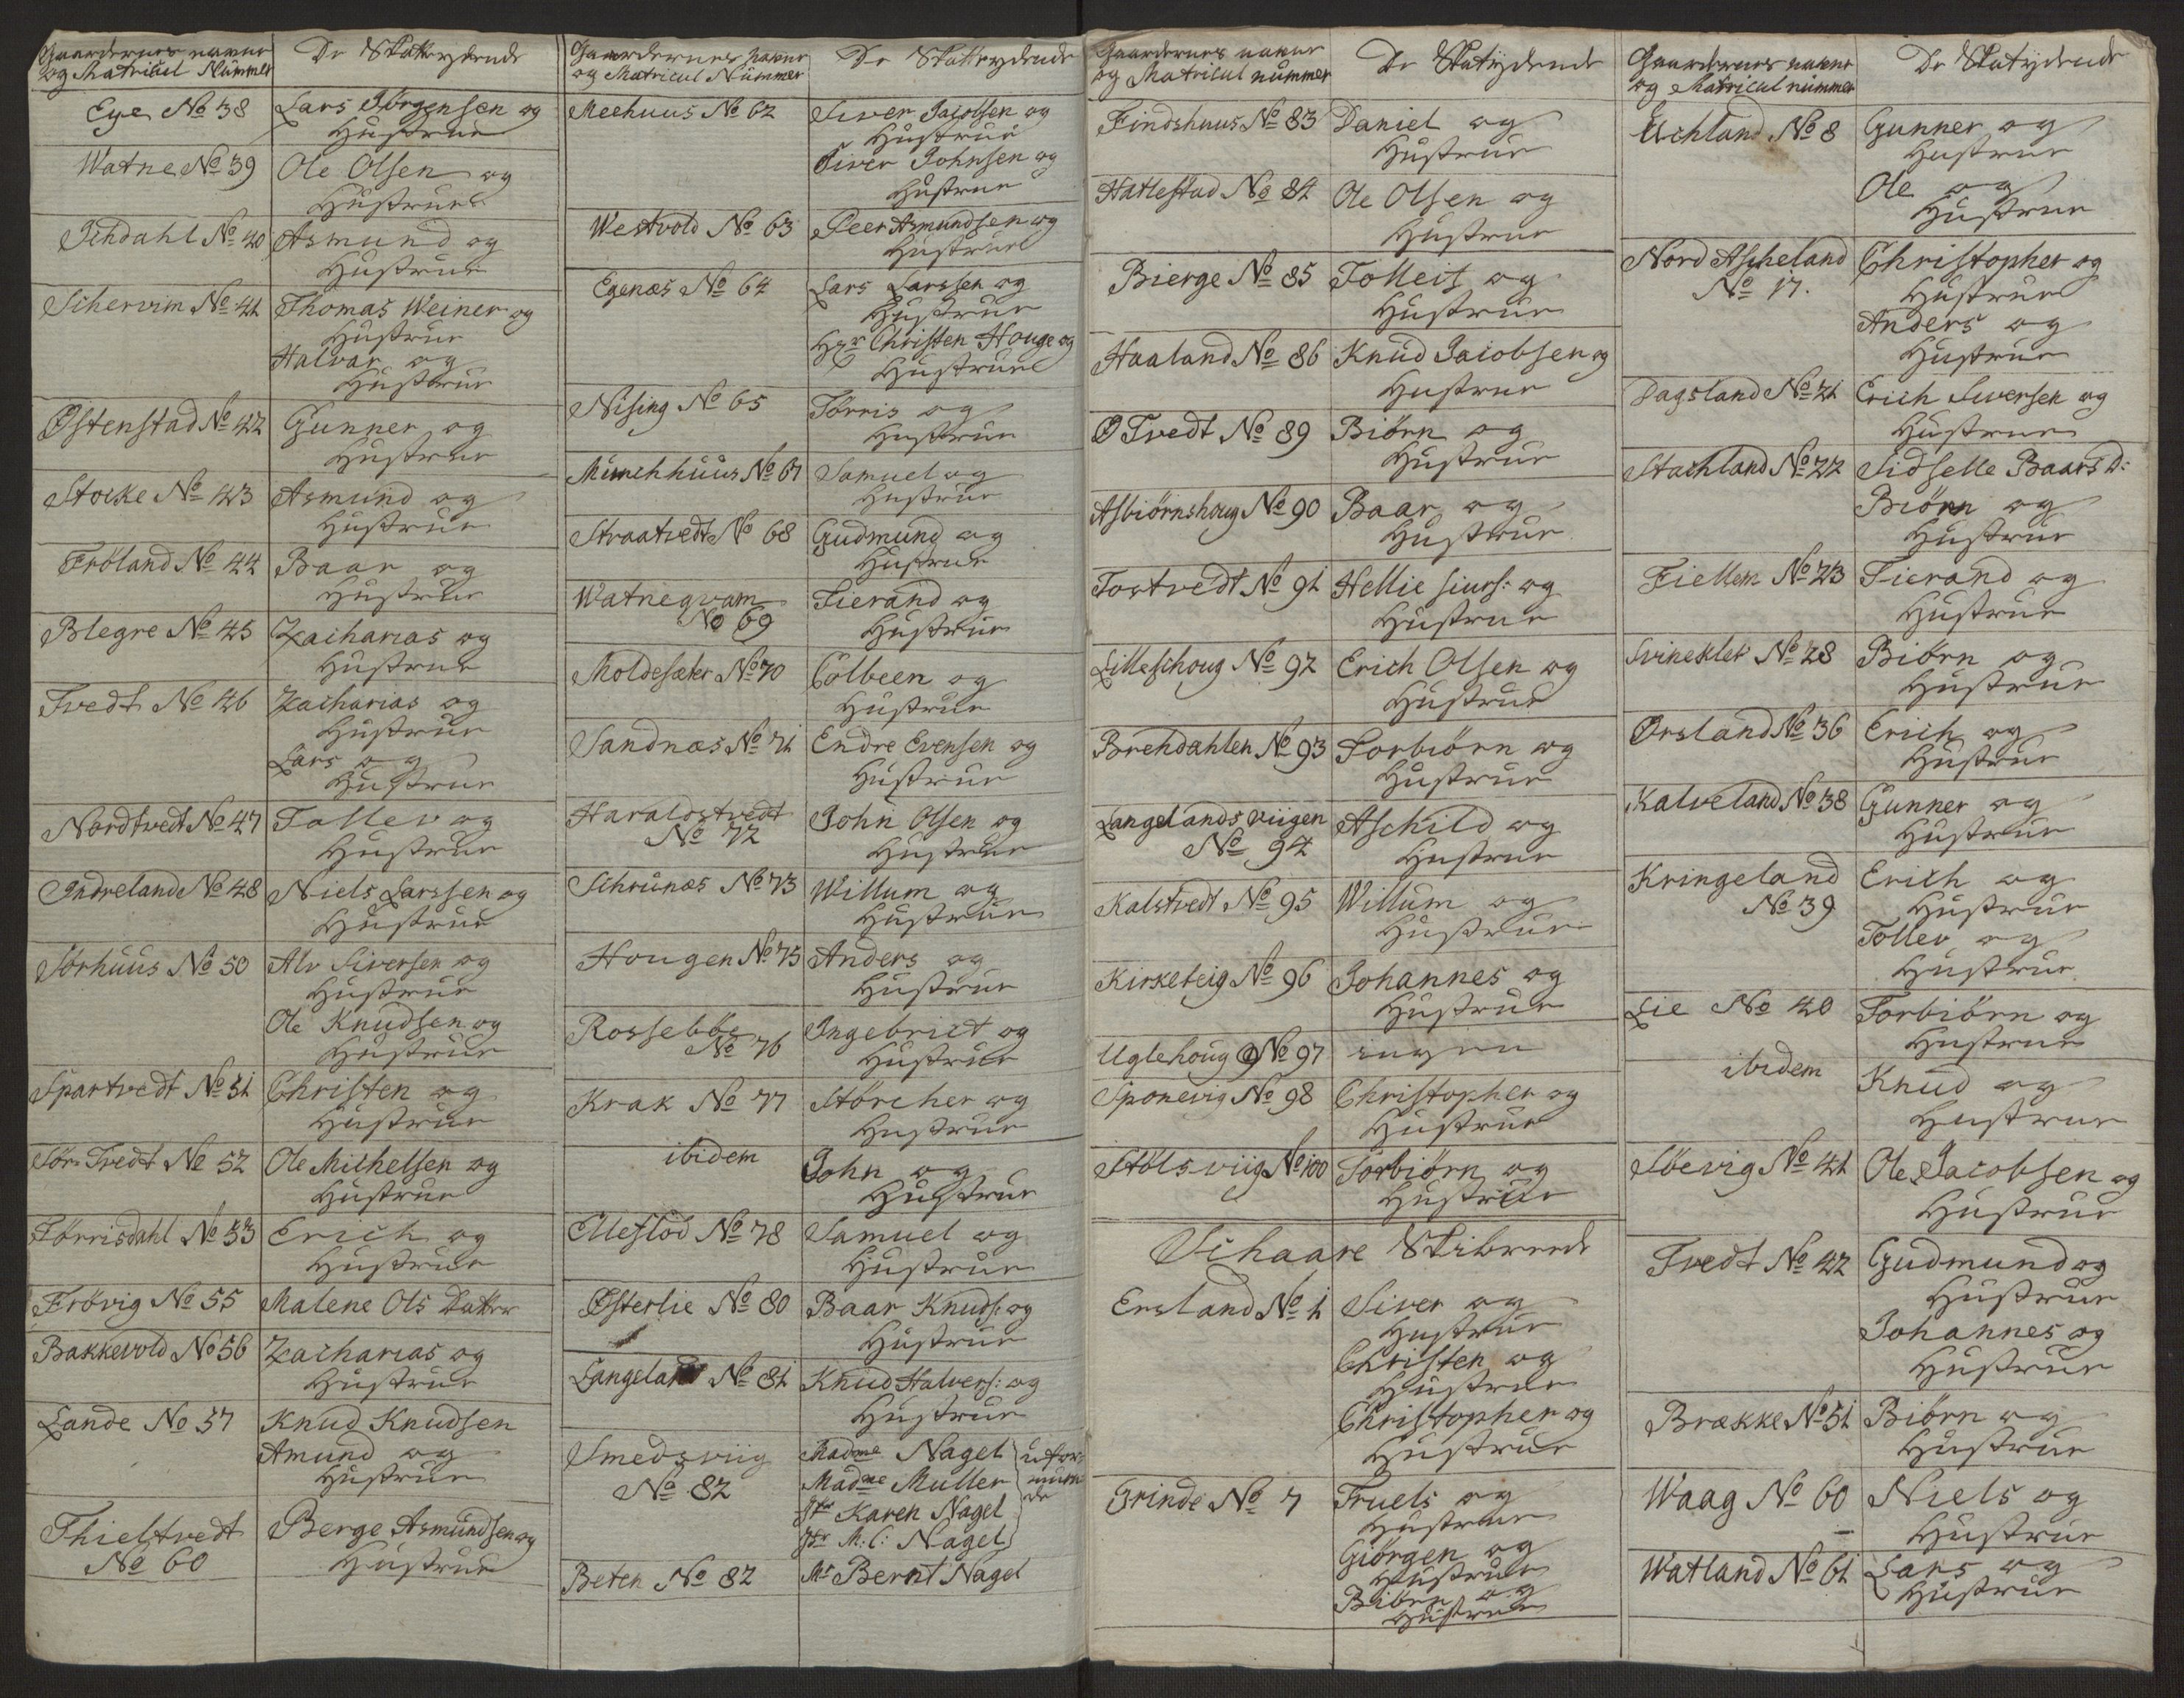 Gaardernes navne
og Matricul Nummer
De Skattydende
Eye No 38
Lars Jörgensen og
Hustrue
Watne No 39
Ole Olsen og
Hustrue
Schdahl No 40
Asmund og
Hustrue
Schervim No 41
Thomas Weiner og
Hustrue
Halvar og
Hustrue
Østenstad No 42
Gunner og
Hustrue
Stocke No 43
Asmund og
Hustrue
Fröland No 44
Baar og
Hustrue
Blegre No 45
Zacharias og
Hustrue
Tvedt No 46
Zacharias og
Hustrue
Lars og
Hustrue
Nordtvedt No 47
Tollev og
Hustrue
Indrelande No 48
Niels Larssen og
Hustrue
Sörhuus No 50
Alv Siversen og
Hustrue
Ole Knudsen og
Hustrue
Spartvedt No 51
Christen og
Hustrue
Sör Tvedt No 52
Ole Michelsen og
Hustrue
Törrisdahl No 53
Erich og
Hustrue
Frövig No 55
Malene Ols Datter
Bakkevold No 56
Zacharias og
Hustrue
Lande No 57
Knud Knudsen
Amund og
Hustrue
Thieltvedt
No 60
Berge Asmundsen og
Hustrue
Gaardernes navne
og Matricul Nummer
De Skattydende
Meehuus No 62
Siver Jacobsen og
Hustrue
Siver Johnsen og
Hustrue
Westvold No 63
Peer Asmundsen og
Hustrue
Egenæs No 64
Lars Larssen og
Hustrue
Hgr Christen Houge og
Hustrue
Nising No 65
Törris og
Hustrue
Munchhuus No 67
Samuel og
Hustrue
Straatvedt No 68
Gudmund og
Hustrue
Watneqvam
No 69
Sierand og
Hustrue
Moldesæter No 70
Colbeen og
Hustrue
Sandnæs No 71
Endre Evensen og
Hustrue
Haraldstvedt
No 72
John Olsen og
Hustrue
Schrunæs No 73
Willum og
Hustrue
Hougen No 75
Anders og
Hustrue
Rosseböe
No 76
Ingebrict og
Hustrue
Krak No 77
Störcher og
Hustrue
ibidem
John og
Hustrue
Ellefslod No 78
Samuel og
Hustrue
Østerlie No 80
Baar Knuds: og
Hustrue
Langeland No 81
Knud Halvers: og
Hustrue
Smedsviig
No 82
Madme Nagel
Madme Muller
Jfr Karen Nagel
Jfr M: C: Nagel
ufor-
muen
de
Beten No 82
Mr Bernt Nagel
Gaardernes navne
og Matricul nummer
De Skatydende
Findshuus No 83
Daniel og
Hustrue
Hatlestad No 84
Ole Olsen og
Hustrue
Bierge No 85
Tolleis og
Hustrue
Haaland No 86
Knud Jacobsen og
Hustrue
O Tvedt No 89
Biörn og
Hustrue
Asbiörnshoug No 90
Baar og
Hustrue
Tostvedt No 91
Hellie siurs: og
Hustrue
Lilleschoug No 92
Erich Olsen og
Hustrue
Brehdahlen No 93
Torbiörn og
Hustrue
Langelands viigen
No 94
Aschild og
Hustrue
Kalstvedt No 95
Willum og
Hustrue
Kirketeig No 96
Johannes og
Hustrue
Uglehoug No 97
ingen
Sponevig No 98
Christopher og
Hustrue
Stölsviig No 100
Torbiörn og
Hustrue
Schaare Skibrede
Ersland No 1
Siver og
Hustrue
Christen og
Hustrue
Christopher og
Hustrue
Grinde No 7
Truels og
Hustrue
Giörgen og
Hustrue
Biörn og
Hustrue
Gaardernes navne
og Matricul nummer
De Skatydende
Uchland No 8
Gunner og
Hustrue
Ole og
Hustrue
Nord Ascheland
No 17.
Christopher og
Hustrue
Anders og
Hustrue
Dagsland No 21
Erich Siversen og
Hustrue
Stachland No 22
Sidselle Baars D:
Biörn og
Hustrue
Fiellen No 23
Sierand og
Hustrue
Svinekler No 28
Biörn og
Hustrue
Ørsland No 36
Erich og
Hustrue
Kalveland No 38
Gunner og
Hustrue
Kringeland
No 39
Erich og
Hustrue
Tollev og
Hustrue
Lie No 40
Torbiörn og
Hustrue
ibidem
Knud og
Hustrue
Söevig No 41
Ole Jacobsen og
Hustrue
Tvedt No 42
Gudmund og
Hustrue
Johannes og
Hustrue
Brække No 51
Biörn og
Hustrue
Waag No 60
Niels og
Hustrue
Watland No 61
Lars og
Hustrue